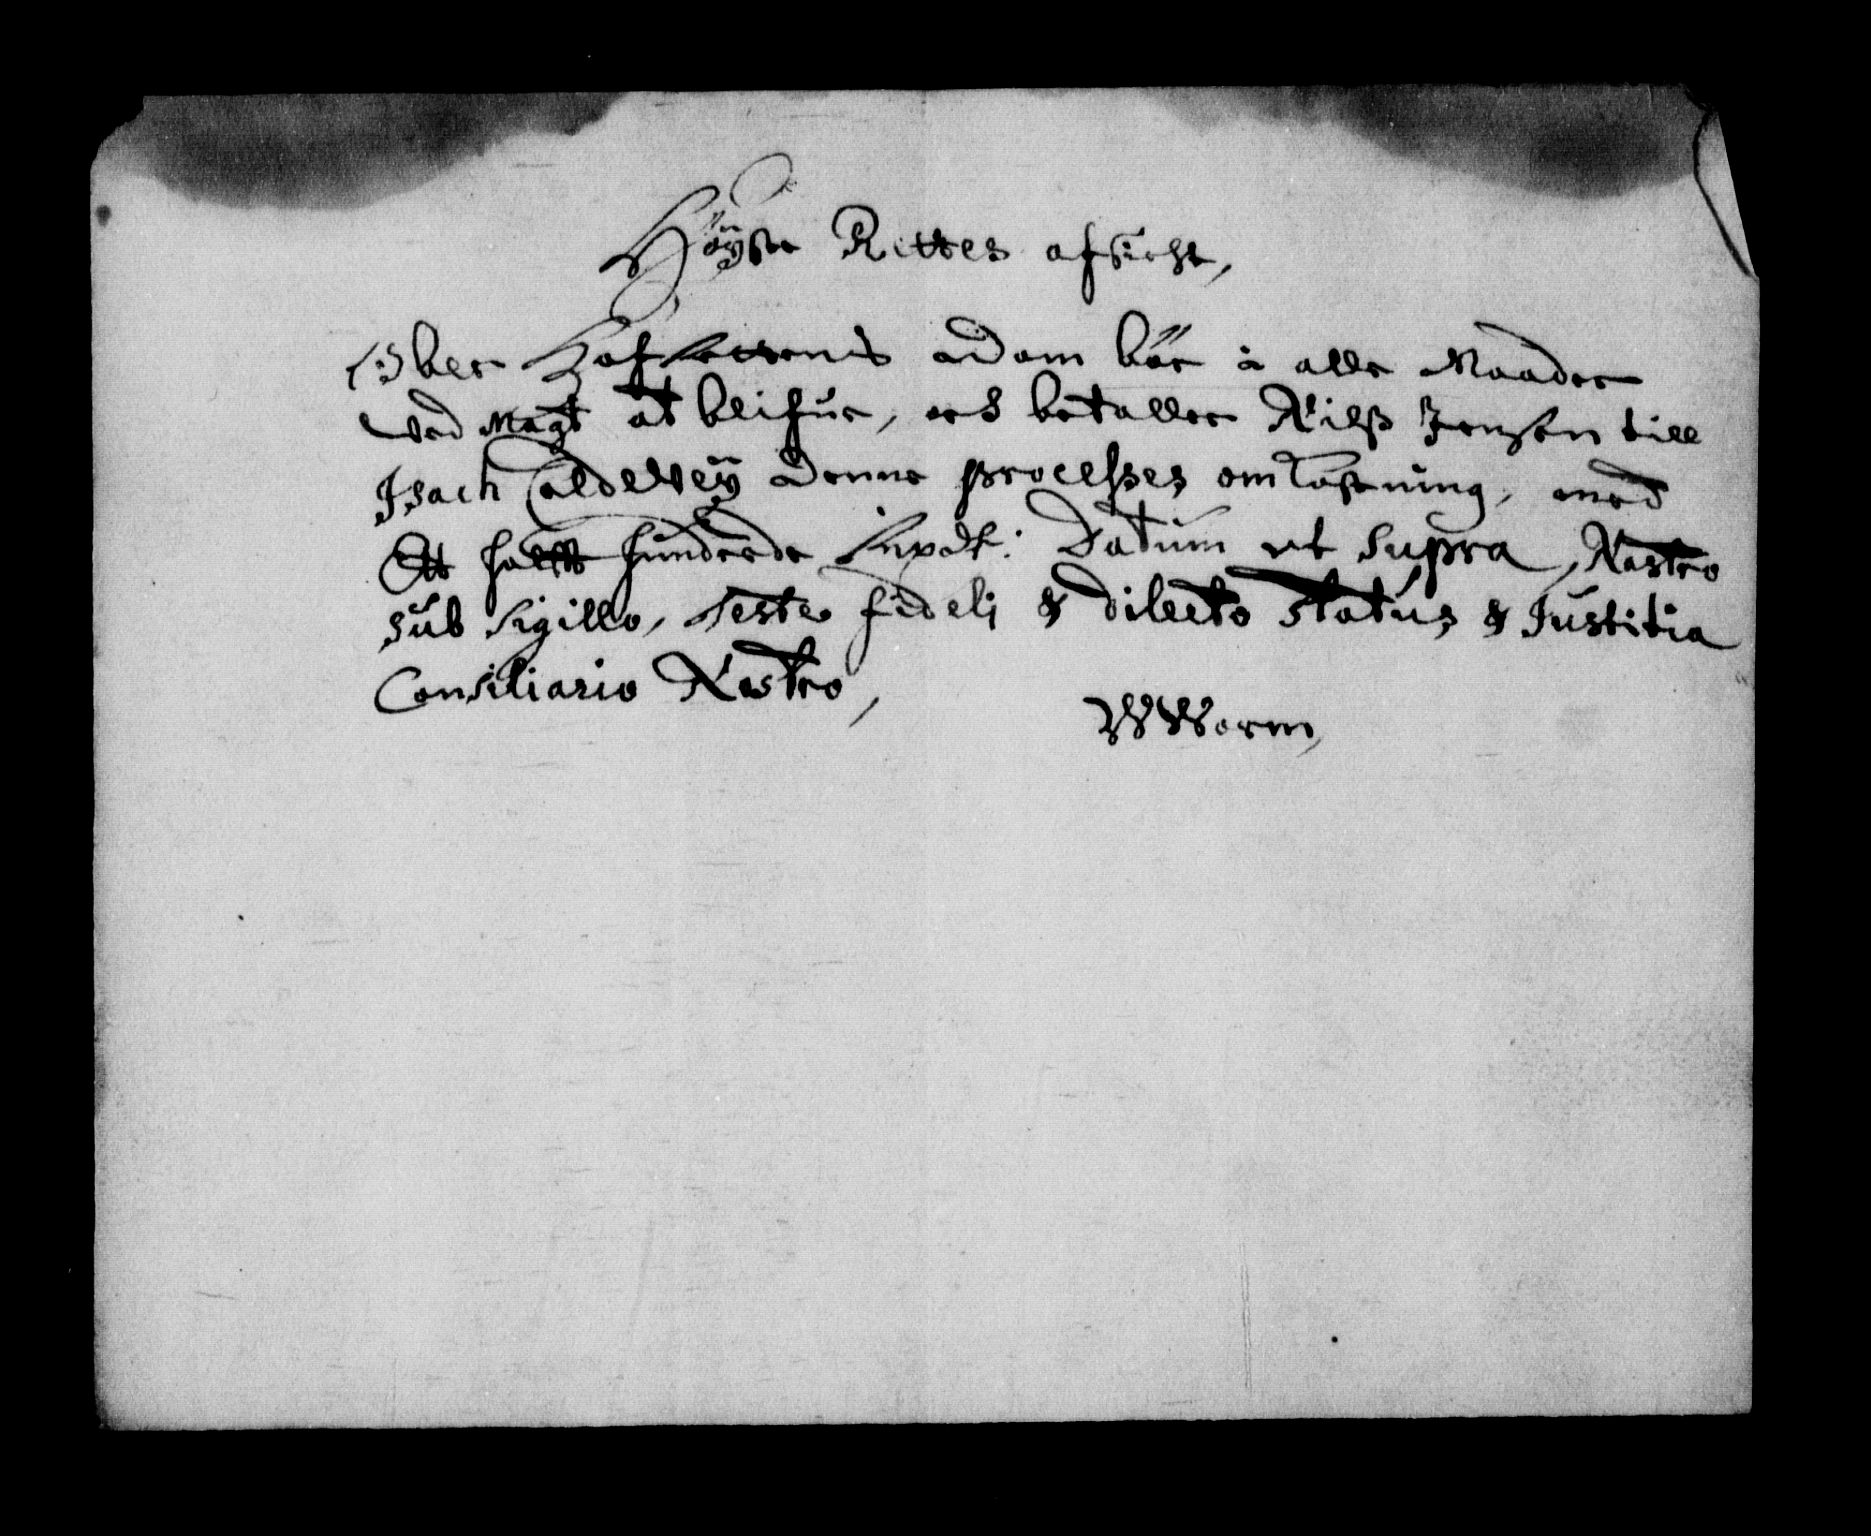 Höyste Rettes afsicht,
Ober Hof Rettens adom bör i alle Maader
ved Magt at blifue, och betaller Nilß Jensen till
Isach Coldevey denne processes omkostning, med
Ett halfft hundrede Rixdlr: Datum ut supra, Nostro
sub Sigillo, Teste fideli & dilecto Status & Justitia
Consiliario Nostro,
WWorm,